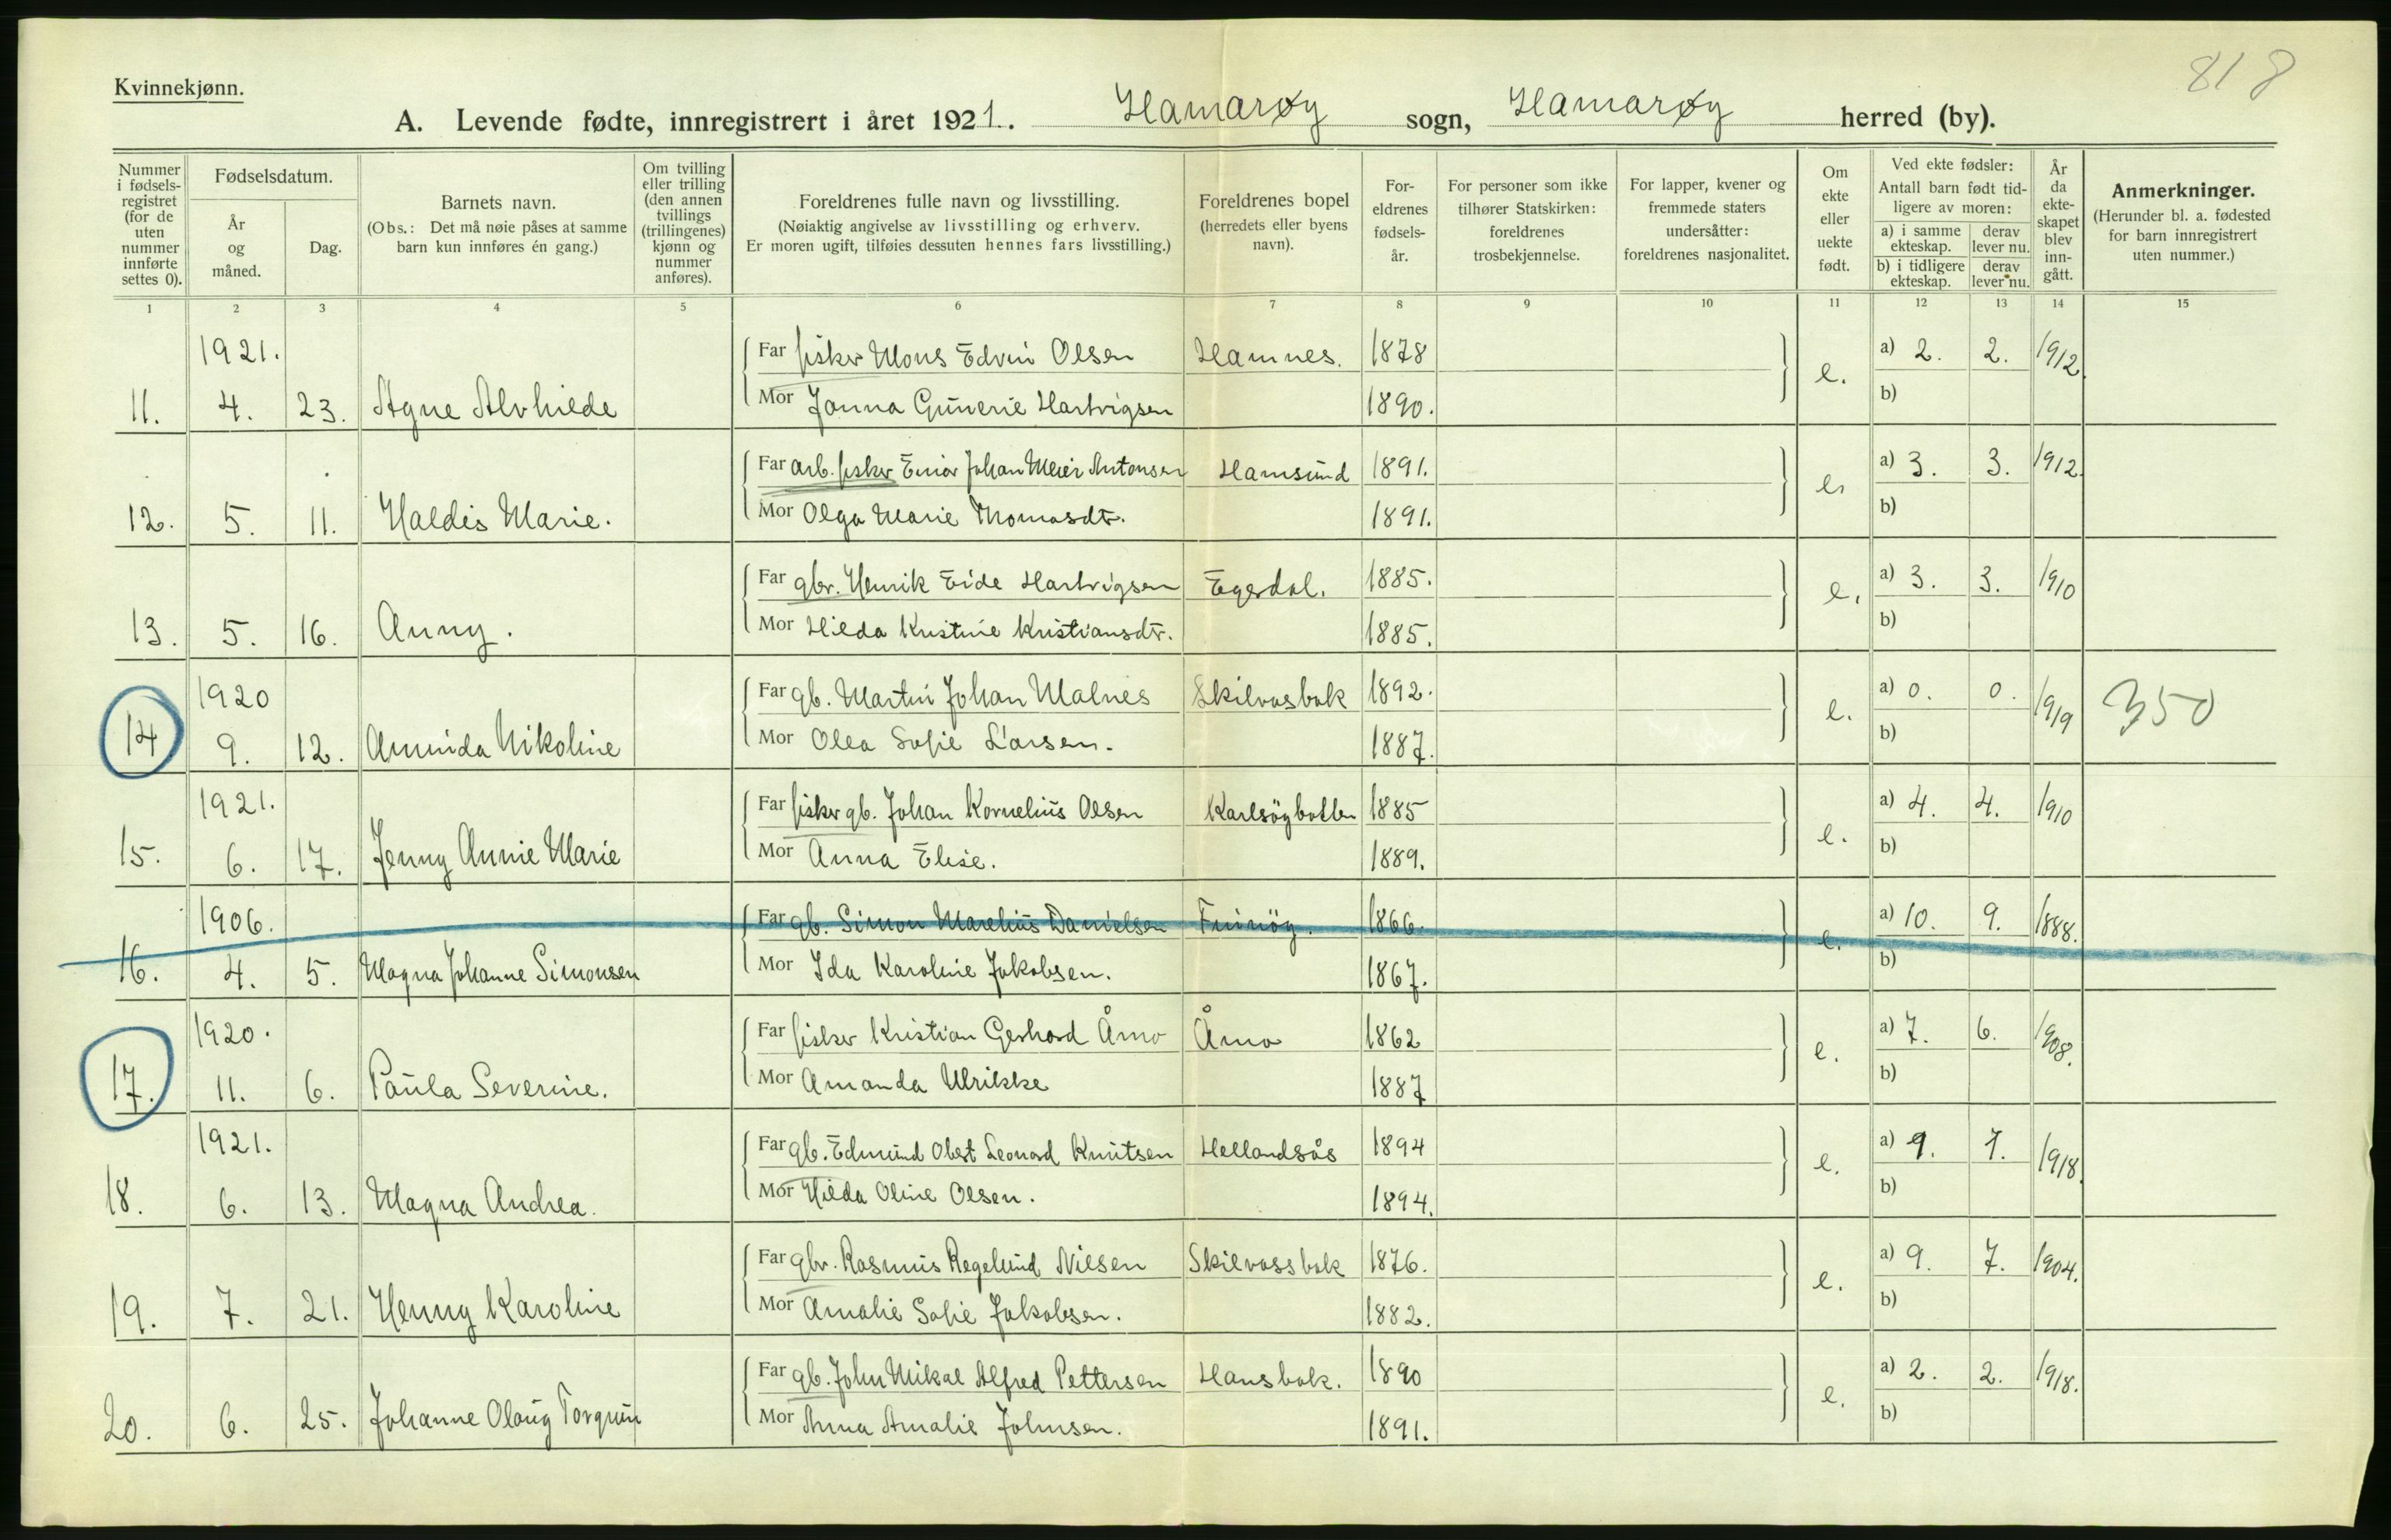 818
Kvinnekjønn.
A. Levende fødte, innregistrert i året 1921. Hamarøy sogn, Hamarøy herred (by).
Nummer i fødsels-registret (for de uten nummer innførte settes 0).
Fødselsdatum.
År og måned.
Dag.
Barnets navn.
(Obs.: Det må nøie påses at samme barn kun innføres én gang.)
Om tvilling eller trilling (den annen tvillings (trillingenes) kjønn og nummer anføres).
Foreldrenes fulle navn og livsstilling.
(Nøiaktig angivelse av livsstilling og erhverv.
Er moren ugift, tilføies dessuten hennes fars livsstilling.)
Foreldrenes bopel (herredets eller byens navn).
For-eldrenes fødsels-år.
For personer som ikke tilhører Statskirken: foreldrenes trosbekjennelse.
For lapper, kvener og fremmede staters undersåtter: foreldrenes nasjonalitet.
Om ekte eller uekte født.
Ved ekte fødsler:
Antall barn født tid-ligere av moren:
a) i samme ekteskap. derav lever nu.
b) i tidligere ekteskap. derav lever nu.
År da ekte-skapet blev inn-gått.
Anmerkninger.
(Herunder bl. a. fødested for barn innregistrert uten nummer.)
1 2 3 4 5 6 7 8 9 10 11 12 13 14 15
1921. Far fisker Mons Edvin Olsen Hamnes. 1878 a) 2. 2. 1912.
11. 4. 23. Agne Alvhilde Mor Janna Gunerie Hartvigsen 1890. e. b)
Far arb. fisker Einar Johan Meier Antonsen Hamsund 1891. a) 3. 3. 1912.
12. 5. 11. Haldis Marie. Mor Olga Marie Thomasdtr. 1891. e. b)
Far gbr. Henrik Eide Hartvigsen Egerdal. 1885. a) 3. 3. 1910
13. 5. 16. Anny. Mor Hilda Kristine Kristiansdtr. 1885. e. b)
1920 Far gb. Martin Johan Malnes Skilvasbak 1892. a) 0. 0. 1919 350
14 9. 12. Amunda Nikoline Mor Olea Sofie Larsen. 1887. e. b)
1921. Far fisker gb. Johan Kornelius Olsen Karlsöybotten 1885 a) 4. 4. 1910
15. 6. 17. Jenny Annie Marie Mor Anna Elise. 1889. e. b)
1906. Far gb. Simon Marelius Danielsen Finnöy. 1866. a) 10. 9. 1888.
16. 4. 5. Magna Johanne Simonsen Mor Ida Karoline Jakobsen. 1867. e. b)
1920. Far fisker Kristian Gerhard Åmo Åmo 1862 a) 7. 6. 1908.
17. 11. 6. Paula Severine. Mor Amanda Ulrikke 1887 e. b)
1921. Far gb. Edmund Obert Leonard Knutsen Hellandsås 1894 a) 1. 1. 1918.
18. 6. 13. Magna Andrea. Mor Hilda Oline Olsen. 1894. e. b)
Far gbr. Rasmus Regelund Nilsen Skilvassbak 1876. a) 9. 7. 1904.
19. 7. 21. Henny Karoline Mor Amalie Sofie Jakobsen. 1882. e. b)
Far gb. John Mikal Alfred Pettersen Hansbak. 1890 a) 2. 2. 1918.
20. 6. 25. Johanne Olaug Torgunn Mor Anna Amalie Johnsen. 1891. e. b)